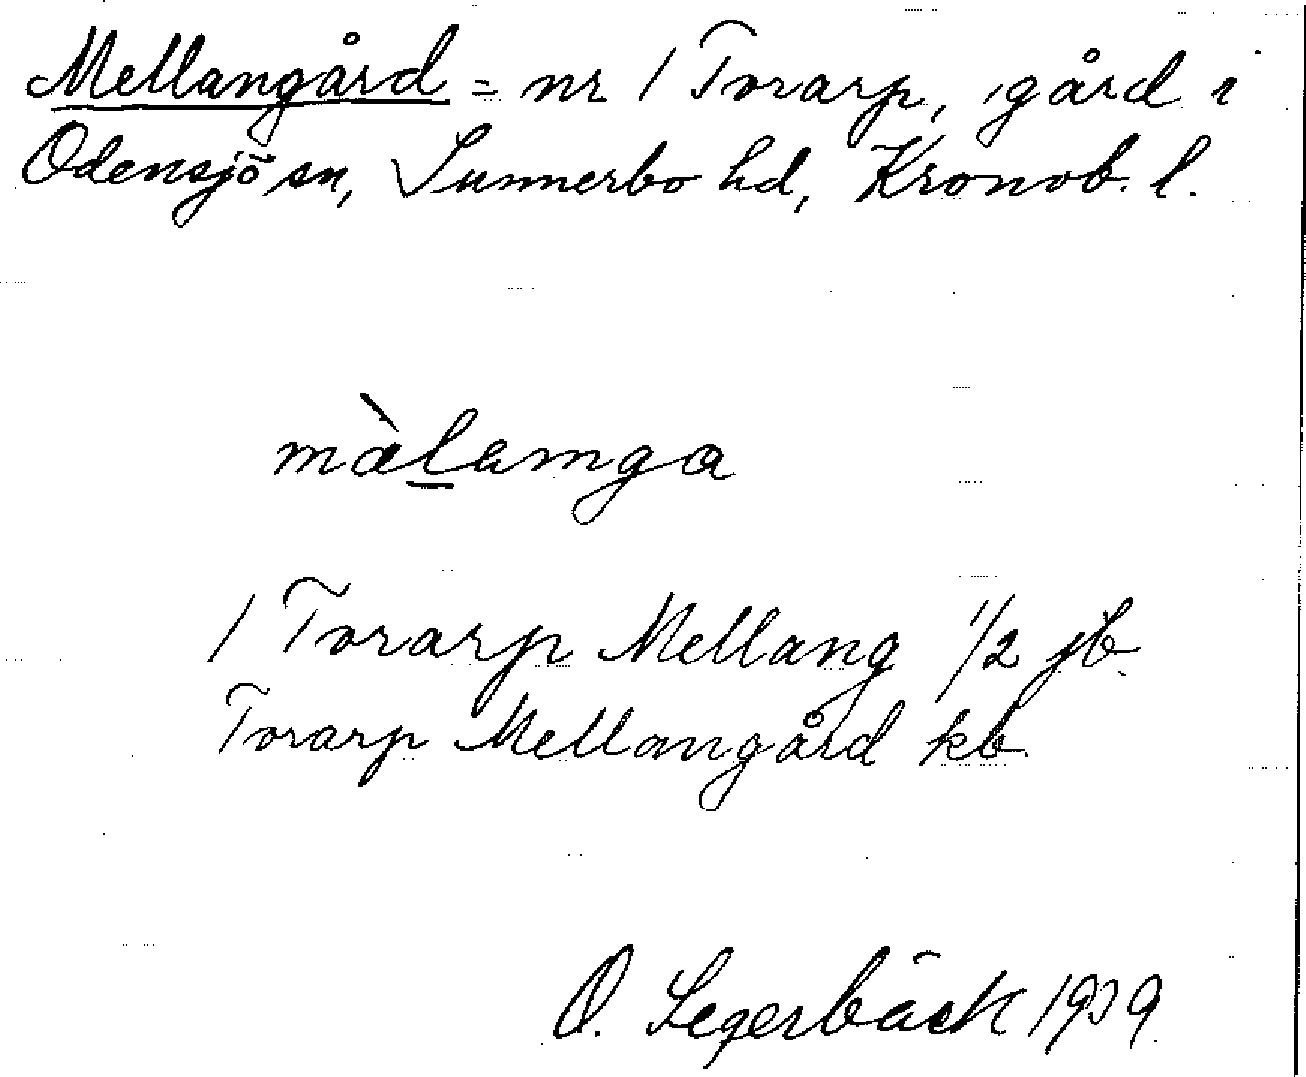 Mellangård = nr 1 Torarp, gård i
Odensjö sn, Sunnerbo hd, Kronob. l.
màlamga
1 Torarp Mellang 1/2 jb
Torarp Mellangård kb
O. Segerbäck 1939